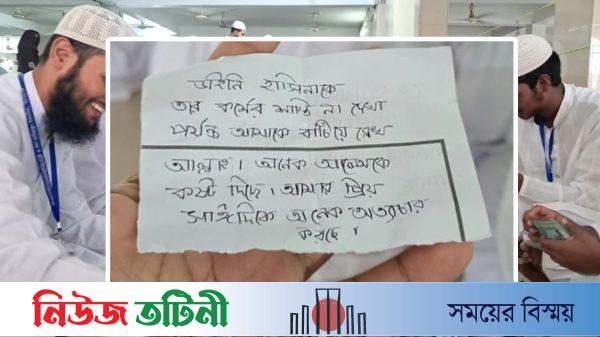 ডাইনি হাসিনাকে
তার কর্মের শাস্তি না দেখা
পর্যন্ত আমাকে বাঁচিয়ে রেখ
আল্লাহ। অনেক আলেমকে
কষ্ট দিছে। আমার প্রিয়
সাঈদিকে অনেক অত্যাচার
করছে।
নিউজ তটিনী
সময়ের বিস্ময়